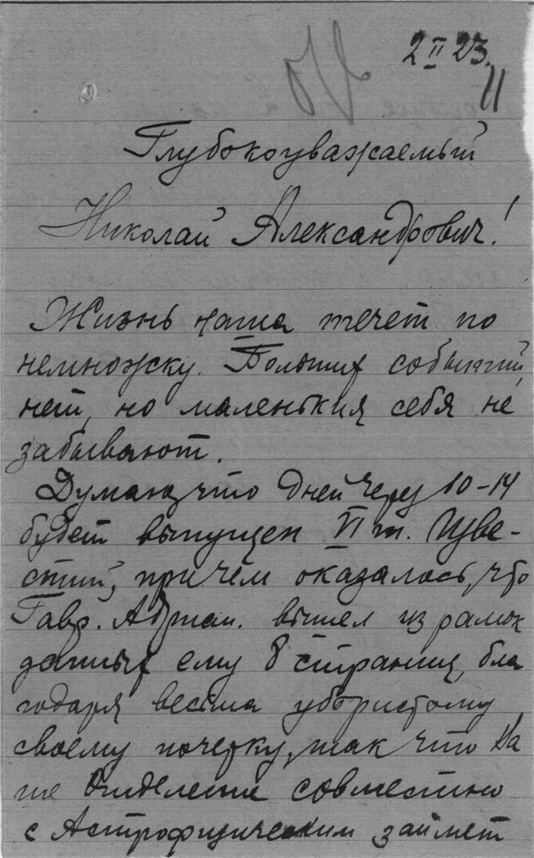 2 II 23.
11
Глубокоуважаемый
Николай Александрович!
Жизнь наша течет по
немножку. Больших событий
нет, но маленькия себя не
забывают.
Думаю, что дней через 10-14
будет выпущен VI т. Изве-
стий, причем оказалось, что
Гавр. Адриан. вышел из рамок
данных ему 8 страниц, бла
годаря весьма убористому
своему почерку, так что Ва
ше Отделение совместно
с Астрофизическим займет